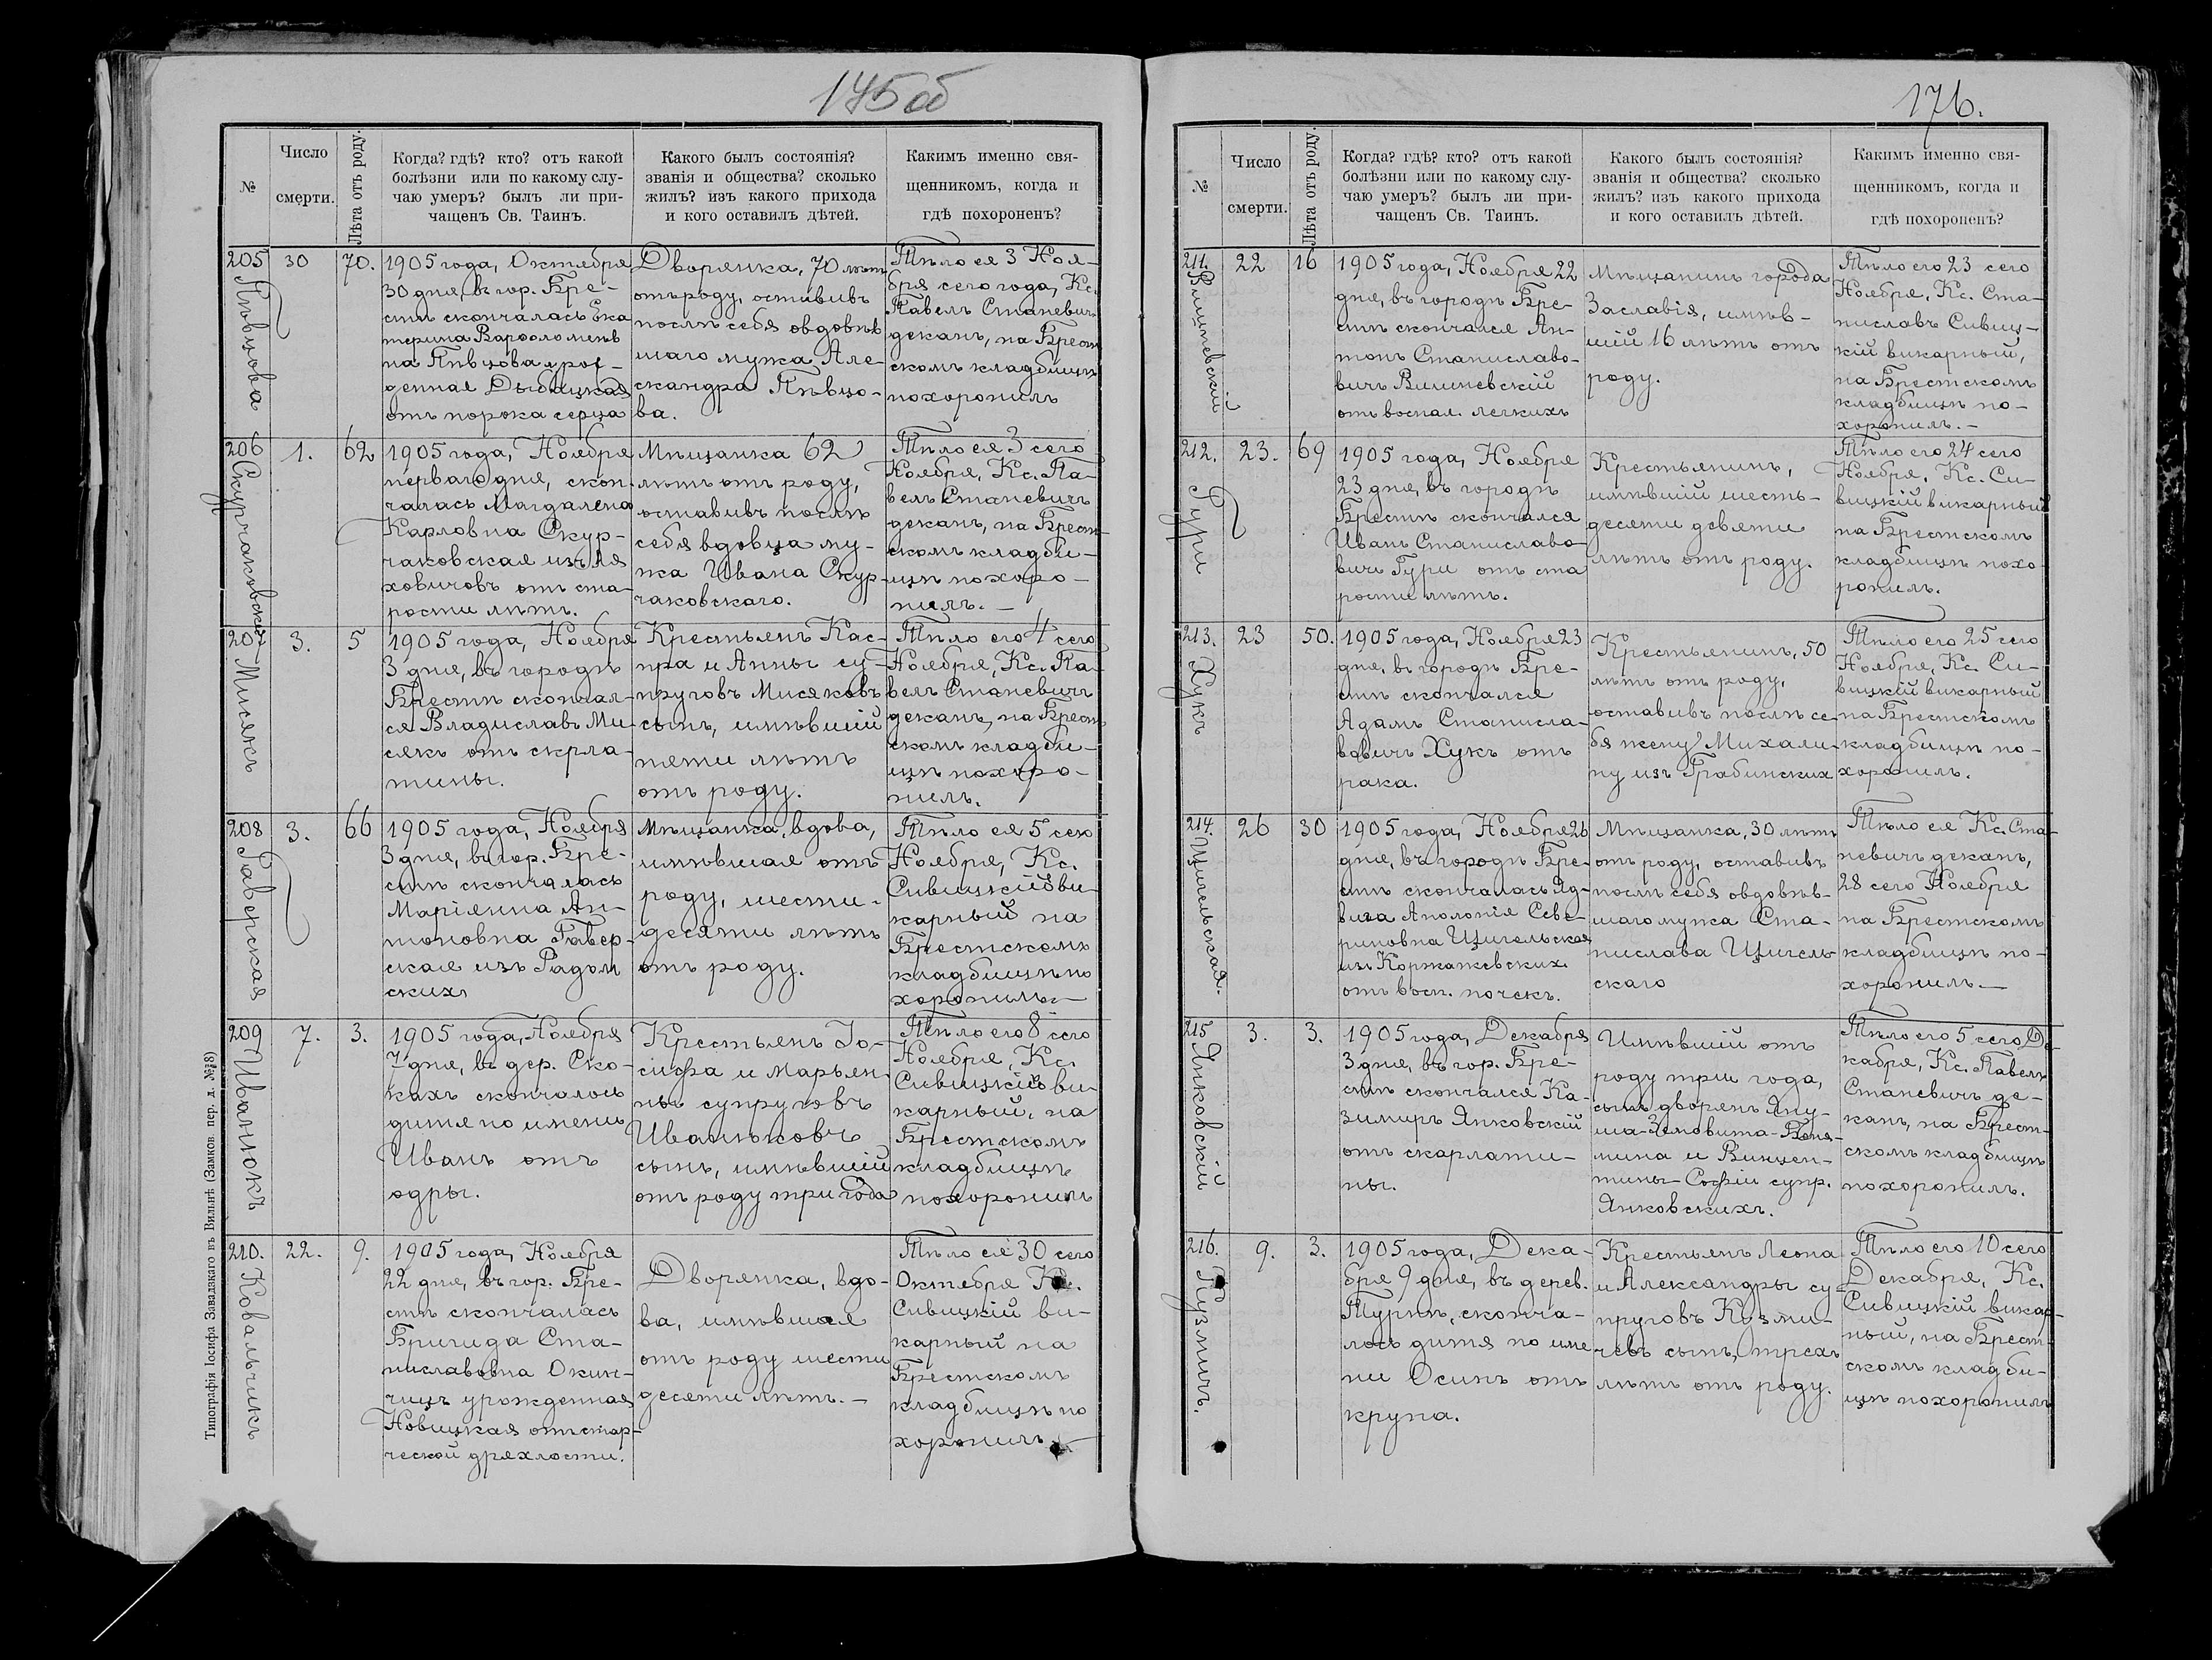 175 об
№
Число
смерти.
Лѣта отъ роду.
Когда? гдѣ? кто? отъ какой
болѣзни или по какому слу-
чаю умеръ? былъ ли при-
чащенъ Св. Таинъ.
Какого былъ состоянія?
званія и общества? сколько
жилъ? изъ какого прихода
и кого оставилъ дѣтей.
Какимъ именно свя-
щенникомъ, когда и
гдѣ похороненъ?
205
Пѣвцова
30
70.
1905 года, Октября
30 дня, въ гор. Бре-
стѣ скончалась Ека
терина Варѳоломеев
на Пѣвцова урож-
денная
отъ порока сердца
Дворянка, 70 лѣтъ
отъ роду, оставивъ
послѣ себя овдовѣв
шаго мужа Але-
ксандра Пѣвцо-
ва.
Тѣло ея 3 Ноя-
бря сего года, Кс.
Павелъ Станевичъ
деканъ, на Брест
скомъ кладбищѣ
похоронилъ
206
Скурчаковская
1.
62
1905 года, Ноября
перваго дня, скон-
чалась Магдалена
Карловна Скур-
чаковская изъ Ля
ховичовъ отъ ста-
рости лѣтъ.
Мѣщанка 62
лѣтъ отъ роду,
оставивъ послѣ
себя вдовца му-
жа Ивана Скур-
чаковскаго.
Тѣло ея 3 сего
Ноября, Кс. Па-
велъ Станевичъ
деканъ, на Брест-
скомъ кладби-
щѣ похоро-
нилъ. —
207
Мисякъ
3.
5
1905 года, Ноября
3 дня, въ городѣ
Брестѣ скончал-
ся Владиславъ Ми
сякъ отъ скрла-
тины.
Крестьянъ Кас-
пра и Анны су-
пруговъ Мисяковъ
сынъ, имѣвшій
пяти лѣтъ
отъ роду.
Тѣло его 4 сего
Ноября, Кс. Па-
велъ Станевичъ
деканъ, на Брест
скомъ кладби-
щѣ похоро-
нилъ.
208
Гаверская
3.
66
1905 года, Ноября
3 дня, въ гор. Бре-
стѣ скончалась
Маріянна Ан-
тоновна Гавер-
ская изъ Радом
скихъ
Мѣщанка, вдова,
имѣвшая отъ
роду, шести-
десяти лѣтъ
отъ роду.
Тѣло ея 5 сего
Ноября, Кс.
Сивицкій ви-
карный на
Брестскомъ
кладбищѣ по
хоронилъ —
209
Иванюкъ
7.
3.
1905 года, Ноября
7 дня, въ дер. Ско-
кахъ скончалось
дитя по имени
Иванъ отъ
одры.
Крестьянъ Іо-
сифа и Марьян-
ны супруговъ
Иванюковъ
сынъ, имѣвшій
отъ роду три года
Тѣло его 8 сего
Ноября, Кс.
Сивицкій ви-
карный, на
Брестскомъ
кладбищѣ
похоронилъ
210.
Ковальчикъ
22.
9.
1905 года, Ноября
22 дня, въ гор. Бре-
стѣ скончалась
Бригида Ста-
ниславовна Окин-
чицъ урожденная
Новицкая отъ стар-
ческой дряхлости.
Дворянка, вдо-
ва, имѣвшая
отъ роду шести
десяти лѣтъ. —
Тѣло ея 30 сего
Октября Кс.
Сивицкій ви-
карный на
Брестскомъ
кладбищѣ по
хоронилъ
Типографія Іосифа Завадзкаго въ Вильнѣ (Замков. пер. д. №
176.
№
Число
смерти.
Лѣта отъ роду.
Когда? гдѣ? кто? отъ какой
болѣзни или по какому слу-
чаю умеръ? былъ ли при-
чащенъ Св. Таинъ.
Какого былъ состоянія?
званія и общества? сколько
жилъ? изъ какого прихода
и кого оставилъ дѣтей.
Какимъ именно свя-
щенникомъ, когда и
гдѣ похороненъ?
211.
Вишневскій
22
16
1905 года, Ноября 22
дня, въ городѣ Бре-
стѣ скончался Ан-
тонъ Станиславо-
вичъ Вишневскій
отъ воспал. легкихъ
Мѣщанинъ города
Заславія, имѣв-
шій 16 лѣтъ отъ
роду.
Тѣло его 23 сего
Ноября, Кс. Ста-
ниславъ Сивиц-
кій викарный,
на Брестскомъ
кладбищѣ по-
хоронилъ. —
212.
Гури
23.
69
1905 года, Ноября
23 дня, въ городѣ
Брестѣ скончался
Иванъ Станиславо-
вичъ Гури отъ ста
рости лѣтъ.
Крестьянинъ,
имѣвшій шесть-
десяти девяти
лѣтъ отъ роду.
Тѣло его 24 сего
Ноября, Кс. Си-
вицкій викарный
на Брестскомъ
кладбищѣ похо-
ронилъ.
213.
Хукъ
23
50.
1905 года, Ноября 23
дня, въ городѣ Бре-
стѣ скончался
Адамъ Станисла-
вовичъ Хукъ отъ
рака.
Крестьянинъ, 50
лѣтъ отъ роду,
оставивъ послѣ се-
бя жену Михали-
ну изъ Грабинскихъ
Тѣло его 25 сего
Ноября, Кс. Си-
вицкій викарный
на Брестскомъ
кладбищѣ по-
хоронилъ.
214.
Щигельская.
26
30
1905 года, Ноября 26
дня, въ городѣ Бре-
стѣ скончалась Яд-
вига Аполонія Севе-
риновна Щигельская
изъ Коржажевскихъ
отъ восп. почекъ.
Мѣщанка, 30 лѣтъ
отъ роду, оставивъ
послѣ себя овдовѣв-
шаго мужа Ста-
нислава Щигель-
скаго
Тѣло ея Кс. Ста-
невичъ деканъ,
28 сего Ноября
на Брестскомъ
кладбищѣ по-
хоронилъ. —
215
Янковскій
3.
3.
1905 года, Декабря
3 дня, въ гор. Бре-
стѣ скончался Ка-
зимиръ Янковскій
отъ скарлати-
ны.
Имѣвшій отъ
роду три года,
сынъ дворянъ Яну-
ша-Земовита-
и Винцен-
тины-Софіи супр.
Янковскихъ.
Тѣло его 5 сего Де-
кабря, Кс. Павелъ
Станевичъ де-
канъ, на Брест-
скомъ кладбищѣ
похоронилъ.
216.
Кузмичъ.
9.
3.
1905 года, Дека-
бря 9 дня, въ дерев.
Турнѣ, сконча-
лось дитя по име
ни Осипъ отъ
крупа.
Крестьянъ Леона
и Александры су-
пруговъ Кузми-
чёвъ сынъ, трехъ
лѣтъ отъ роду.
Тѣло его 10 сего
Декабря, Кс.
Сивицкій викар-
ный, на Брест-
скомъ кладби-
щѣ похоронилъ